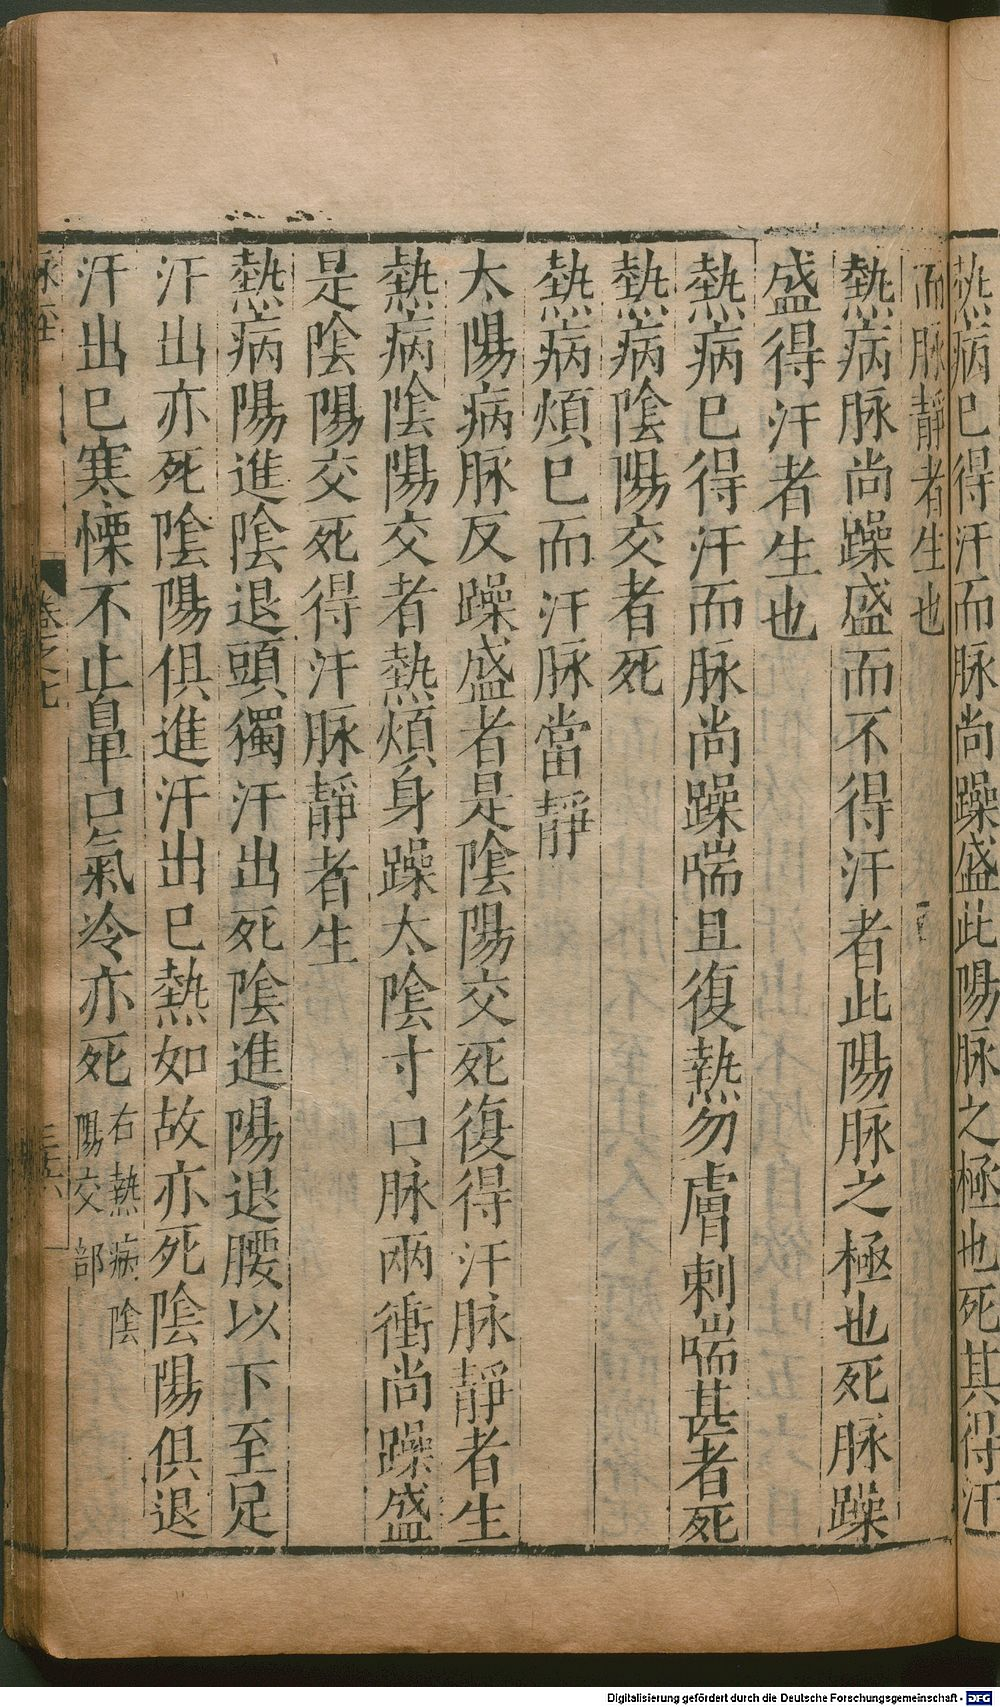 熱病已得汗而脉尚躁盛此陽脉之極也死其得汗
而脉靜者生也
熱病脉尚躁盛而不得汗者此陽脉之極也死脉躁
盛得汗者生也
熱病已得汗而脉尚躁喘且復熱勿膚刺喘甚者死
熱病陰陽交者死
熱病煩已而汗脉當靜
太陽病脉反躁盛者是陰陽交死復得汗脉靜者生
熱病陰陽交者熱煩身躁太陰寸口脉兩衝尚躁盛
是陰陽交死得汗脉靜者生
熱病陽進陰退頭獨汗出死陰進陽退腰以下至足
汗出亦死陰陽俱進汗出已熱如故亦死陰陽俱退
汗出已寒慄不止鼻口氣冷亦死 右熱病陰
陽交部
卷之七
Digitalisierung gefördert durch die Deutsche Forschungsgemeinschaft - DFG